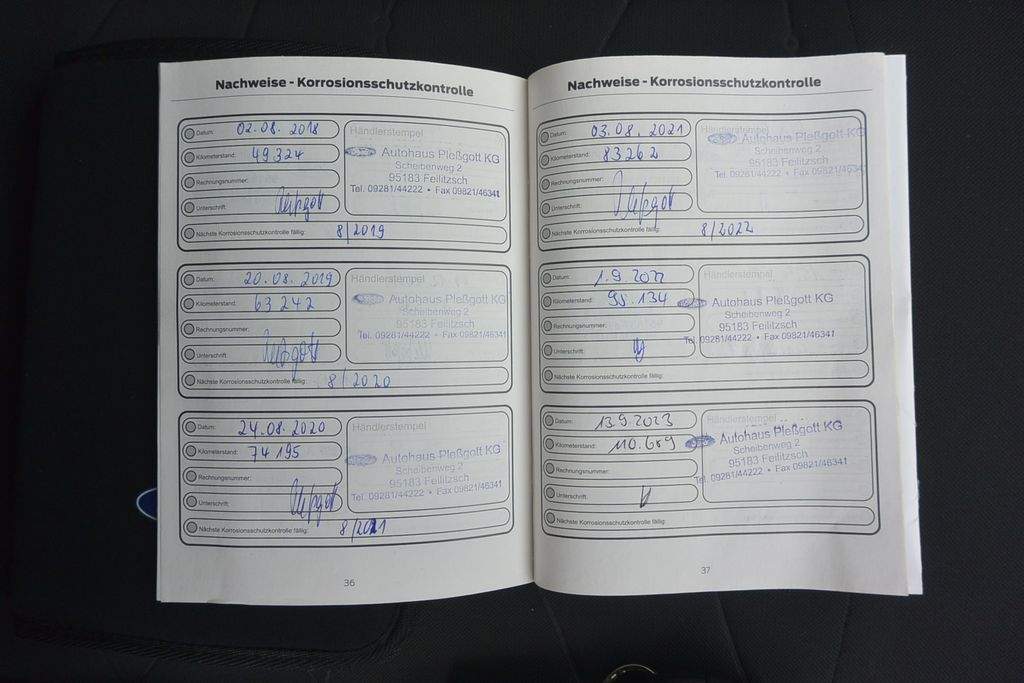 Nachweise - Korrosionsschutzkontrolle
Datum: 02.08. 2018
Händlerstempel
Kilometerstand: 49 324
Autohaus Pleßgott KG
Scheibenweg 2
95183 Feilitzsch
Tel. 09281/44222 • Fax 09821/46341
Rechnungsnummer:
Unterschrift:
Nächste Korrosionsschutzkontrolle fällig: 8/2019
Datum: 20.08. 2019
Händlerstempel
Kilometerstand: 63 242
Autohaus Pleßgott KG
Scheibenweg 2
95183 Feilitzsch
Tel. 09281/44222 • Fax 09821/46341
Rechnungsnummer:
Unterschrift:
Nächste Korrosionsschutzkontrolle fällig: 8/2020
Datum: 24.08. 2020
Händlerstempel
Kilometerstand: 74 195
Autohaus Pleßgott KG
Scheibenweg 2
95183 Feilitzsch
Tel. 09281/44222 • Fax 09821/46341
Rechnungsnummer:
Unterschrift:
Nächste Korrosionsschutzkontrolle fällig: 8/2021
36
Nachweise - Korrosionsschutzkontrolle
Datum: 03.08. 2021
Händlerstempel
Kilometerstand: 83 262
Autohaus Pleßgott KG
Scheibenweg 2
95183 Feilitzsch
Tel. 09281/44222 • Fax 09821/4634
Rechnungsnummer:
Unterschrift:
Nächste Korrosionsschutzkontrolle fällig: 8/2022
Datum: 1.9.2022
Händlerstempel
Kilometerstand: 98.134
Autohaus Pleßgott KG
Scheibenweg 2
95183 Feilitzsch
Tel. 09281/44222 • Fax 09821/46341
Rechnungsnummer:
Unterschrift:
Nächste Korrosionsschutzkontrolle fällig:
Datum: 13.9.2023
Händlerstempel
Kilometerstand: 110.689
Autohaus Pleßgott KG
Scheibenweg 2
95183 Feilitzsch
Tel. 09281/44222 • Fax 09821/46341
Rechnungsnummer:
Unterschrift:
Nächste Korrosionsschutzkontrolle fällig:
37